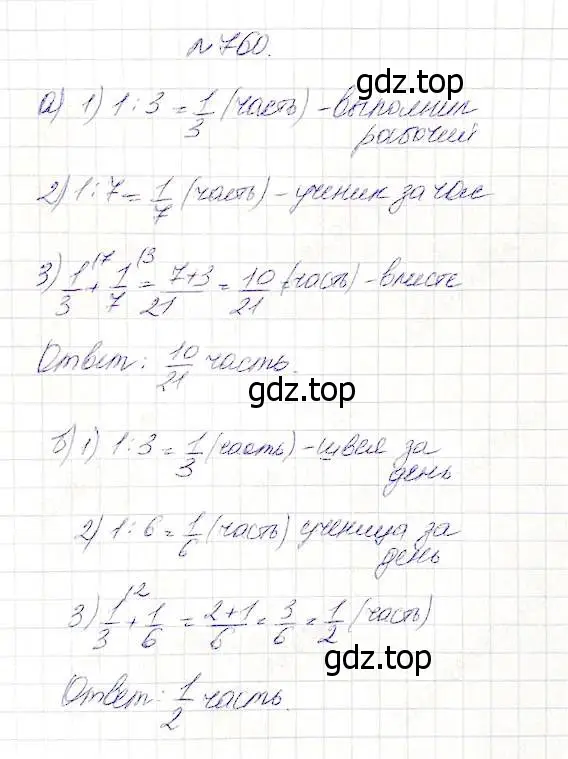 №760.
gdz.top
а) 1) 1 : 3 = 1/3 (часть) - выполнит
рабочий
2) 1 : 7 = 1/7 (часть) - ученик за час
3) 1/3 |7 + 1/7 |3 = 7+3/21 = 10/21 (часть) - вместе
Ответ: 10/21 часть.
gdz.top
б) 1) 1 : 3 = 1/3 (часть) - швея за
день
2) 1 : 6 = 1/6 (часть) ученица за
день
3) 1/3 |2 + 1/6 = 2+1/6 = 3/6 = 1/2 (часть)
gdz.top
Ответ: 1/2 часть.